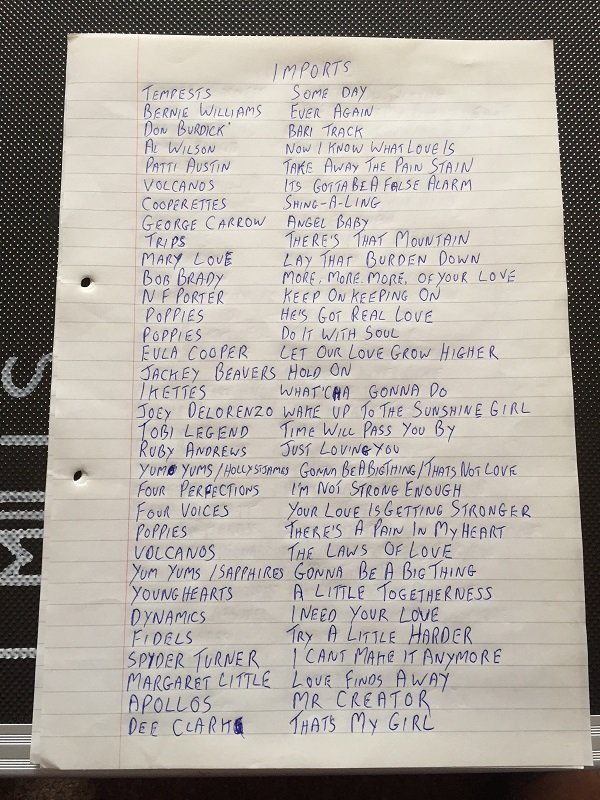 IMPORTS
TEMPESTS SOME DAY
BERNIE WILLIAMS EVER AGAIN
DON BURDICK BARI TRACK
AL WILSON NOW I KNOW WHAT LOVE IS
PATTI AUSTIN TAKE AWAY THE PAIN STAIN
VOLCANOS ITS GOTTA BE A FALSE ALARM
COOPERETTES SHING-A-LING
GEORGE CARROW ANGEL BABY
TRIPS THERE'S THAT MOUNTAIN
MARY LOVE LAY THAT BURDEN DOWN
BOB BRADY MORE, MORE, MORE, OF YOUR LOVE
N F PORTER KEEP ON KEEPING ON
POPPIES HE'S GOT REAL LOVE
POPPIES DO IT WITH SOUL
EULA COOPER LET OUR LOVE GROW HIGHER
JACKEY BEAVERS HOLD ON
IKETTES WHAT'CHA GONNA DO
JOEY DELORENZO WAKE UP TO THE SUNSHINE GIRL
TOBI LEGEND TIME WILL PASS YOU BY
RUBY ANDREWS JUST LOVING YOU
YUM YUMS/HOLLY ST JAMES GONNA BE A BIG THING/THATS NOT LOVE
FOUR PERFECTIONS I'M NOT STRONG ENOUGH
FOUR VOICES YOUR LOVE IS GETTING STRONGER
POPPIES THERE'S A PAIN IN MY HEART
VOLCANOS THE LAWS OF LOVE
YUM YUMS/SAPPHIRES GONNA BE A BIG THING
YOUNG HEARTS A LITTLE TOGETHERNESS
DYNAMICS I NEED YOUR LOVE
FIDELS TRY A LITTLE HARDER
SPYDER TURNER I CANT MAKE IT ANYMORE
MARGARET LITTLE LOVE FINDS A WAY
APOLLOS MR CREATOR
DEE CLARK THATS MY GIRL